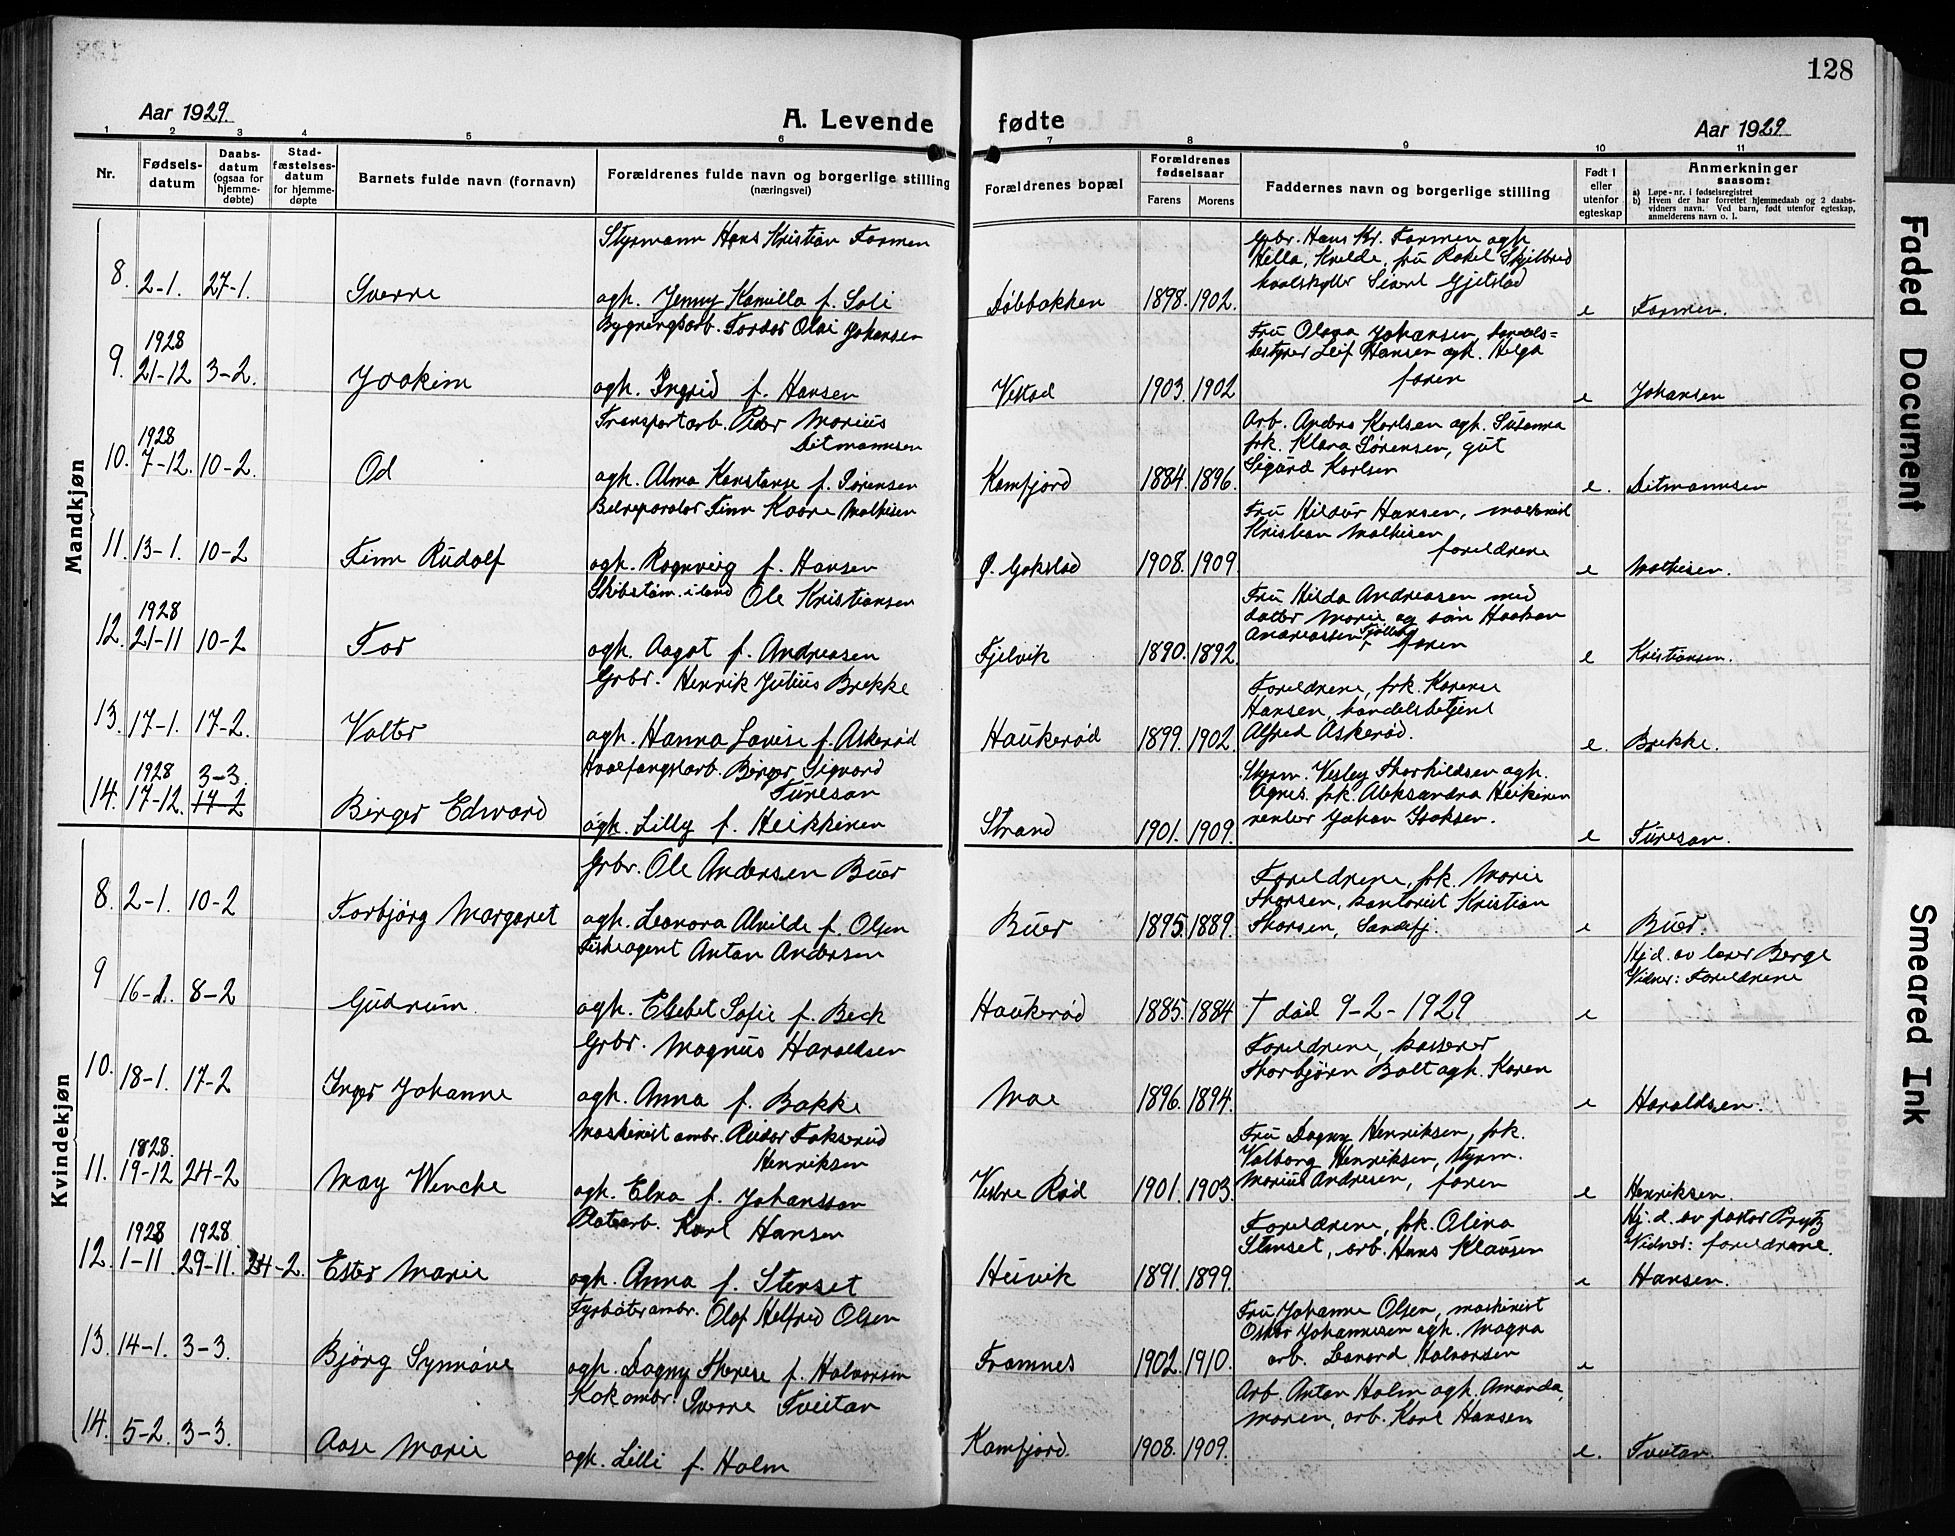 128
Aar 1929.
A. Levende fødte
Aar 1929
1 2 3 4 5 6 7 8 9 10 11
Nr.
Fødsels-
datum
Daabs-
datum
(ogsaa for
hjemme-
døbte)
Stad-
fæstelses-
datum
for hjemme-
døpte
Barnets fulde navn (fornavn)
Forældrenes fulde navn og borgerlige stilling
(næringsvei)
Forældrenes bopæl
Forældrenes
fødselsaar
Farens Morens
Faddernes navn og borgerlige stilling
Født i
eller
utenfor
egteskap
Anmerkninger
saasom:
a) Løpe-nr. i fødselsregistret
b) Hvem der har forrettet hjemmedaab og 2 daabs-
vidners navn. Ved barn, født utenfor egteskap,
anmelderens navn o. l.
Mandkjøn
8. 2-1. 27-1. Sverre
Styrmann Hans Kristian Formen
agh. Jenny Kamilla f. Soli
Døbbakken 1898. 1902.
Grbr. Hans Kr. Formen agh
Hella, Kvelde, fru Rakel Skjelbred
hvalskytter Sivert Gjelstad
e Formen.
9. 1928
21-12 3-2. Joakim
Bygningsarb. Tordar Olai Johansen
agh. Ingrid f. Hansen
Vestad 1903. 1902
Fru Olava Johansen, handels=
bestyrer Leif Hansen agh. Helga
faren
e Johansen
10. 1928
7-12. 10-2. Od
Transportarb. Peder Marius
Ditmannsen
agh. Alma Konstanse f. Sørensen
Kamfjord 1884. 1896.
Arb. Anders Karlsen agh. Susanna
frk. Klara Sørensen, gut
Sigurd Karlsen
e. Ditmannsen
11. 13-1. 10-2 Finn Rudolf
Bilreparatør Finn Kaare Mathisen
agh. Ragnveig f. Hansen
Ø. Gokstad 1908. 1909
Fru Hildur Hansen, maskinist
Kristian Mathisen
foreldrene
e Mathisen.
12. 1928
21-11 10-2 Tor
Skibstøm. i land Ole Kristiansen
agh. Aagot f. Andreasen
Fjelvik 1890. 1892.
Fru Hilda Andreasen med
datter Marie og søn Haakon
Andreassen, faren
e Kristiansen.
13. 17-1. 17-2. Valter
Grbr. Henrik Julius Brekke
agh. Hanna Lovise f. Askerød
Haukerød 1899. 1902.
Foreldrene, frk. Karene
Hansen, handelsbetjent
Alfred Askerød.
e. Brekke.
14. 1928
17-12. 3-3.
17-2 Birger Edward
Hvalfangstarb. Birger Sigvard
Tureson
agh. Lilly f. Heikkinen
Strand 1901. 1909.
Styrm. Vesley Thorkildsen agh.
Agnes, frk. Aleksandra Heikinen
rentier Johan Isaksen.
e Tureson.
Kvindekjøn
8. 2-1. 10-2 Torbjørg Margaret
Grbr. Ole Andersen Buer
agh. Leonora Alvilde f. Olsen
Buer 1895. 1889.
Foreldrene, frk. Marie
Thorsen, kontorist Kristian
Thorsen, Sandefj.
e Buer.
9 16-1. 8-2 Gudrun.
Fiskeagent Anton Andersen
agh. Elsebet Sofie f. Beck
Haukerød 1885. 1884
† død 9-2-1929
e
Hj.d. av lærer Berge
Vidner: Foreldrene
10. 18-1. 17-2 Inger Johanne
Grbr. Magnus Haraldsen
agh. Anna f. Bakke
Moe 1896. 1894.
Foreldrene, kasserer
Thorbjørn Bolt agh. Karen
e Haraldsen.
11. 1828.
19-12 24-2 May Wenche
Maskinist ombr. Reidar Fokserød
Henriksen
agh. Elna f. Johansson
Vestre Rød 1901. 1903.
Fru Dagny Henriksen, frk.
Valborg Henriksen, styrm.
Marius Andresen, faren
e Henriksen.
12. 1928
1-11. 1928
29-11. 24-2. Ester Marie
Platearb. Karl Hansen
agh. Anna f. Stenset
Heivik 1891. 1899.
Foreldrene, frk. Alina
Stenset, arb. Hans Klausen
e
Hj.d. av pastor Prytz
Vidner: foreldrene.
Hansen.
13. 14-1. 3-3. Bjørg Synnøve
Fyrbøter ombr. Olaf Helfred Olsen
agh. Dagny Therese f. Halvorsen
Framnes 1902. 1910.
Fru Johanne Olsen, maskinist
Oskar Johannesen agh. Magna
arb. Leonard Halvorsen
e
14. 5-2. 3-3. Aase Marie
Kok ombr. Sverre Tveitan
agh. Lilli f. Holm
Kamfjord. 1908. 1909.
Arb. Anton Holm agh. Amanda,
moren, arb. Karl Hansen
e. Tveitan.
Faded Document
Smeared Ink